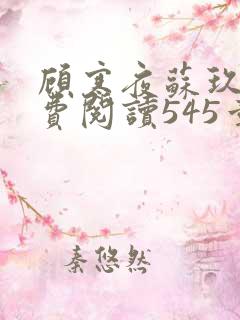 顾寒夜蘇玖
費閱讀545章
秦悠然